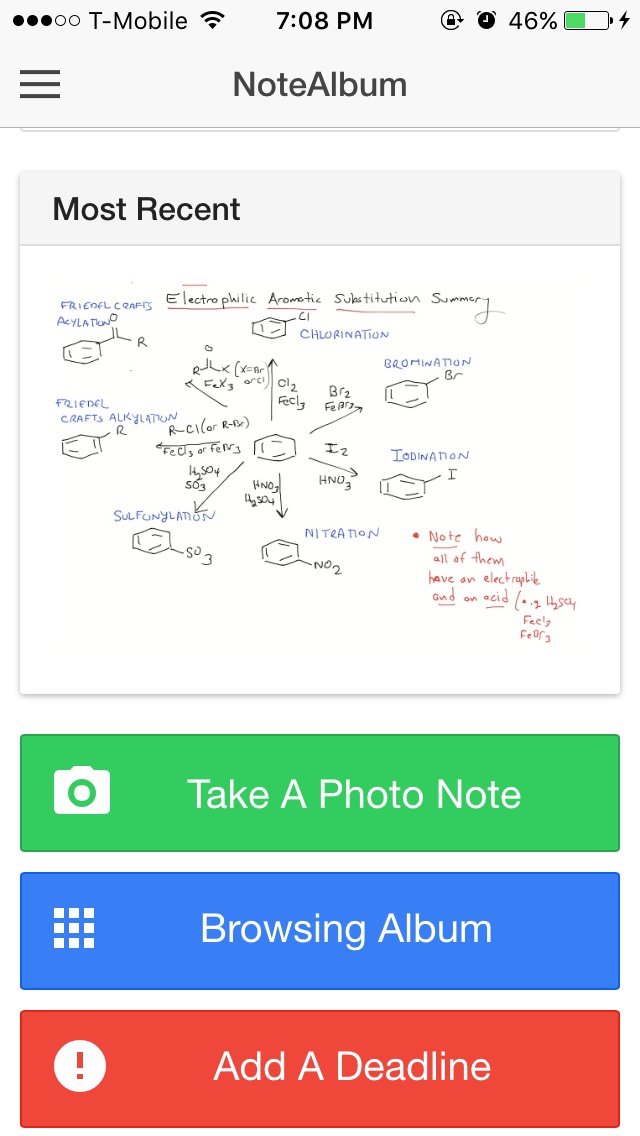 T-Mobile 7:08 PM 46%
NoteAlbum
Most Recent
Electrophilic Aromatic Substitution Summary
FRIEDEL CRAFTS
ACYLATION
O
R
Cl
CHLORINATION
O
R X (X=Br
or Cl)
FeX3
Cl2
FeCl3
Br2
FeBr3
BROMINATION
Br
FRIEDEL
CRAFTS ALKYLATION
R
R-Cl (or R-Br)
FeCl3 or FeBr3
I2
HNO3
IODINATION
I
H2SO4
SO3
HNO3
H2SO4
SULFONYLATION
SO3
NITRATION
NO2
• Note how
all of them
have an electrophile
and an acid (e.g H2SO4
FeCl3
FeBr3
Take A Photo Note
Browsing Album
Add A Deadline